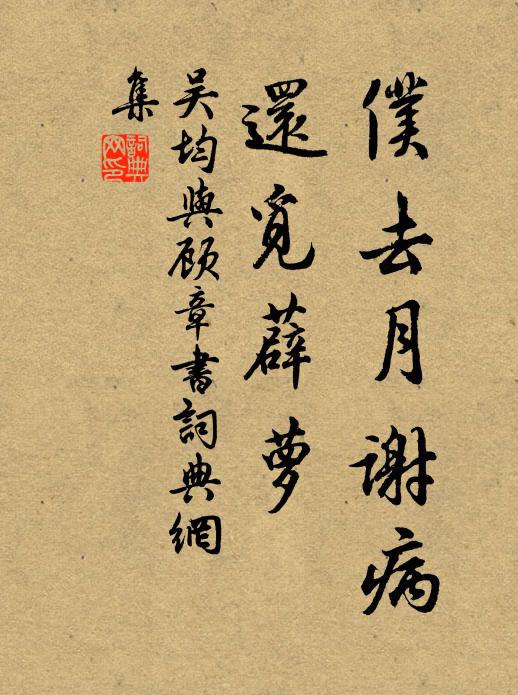 僕去月謝病
還覓薜萝
吴均與顾章書詞典網
集
詞典网印